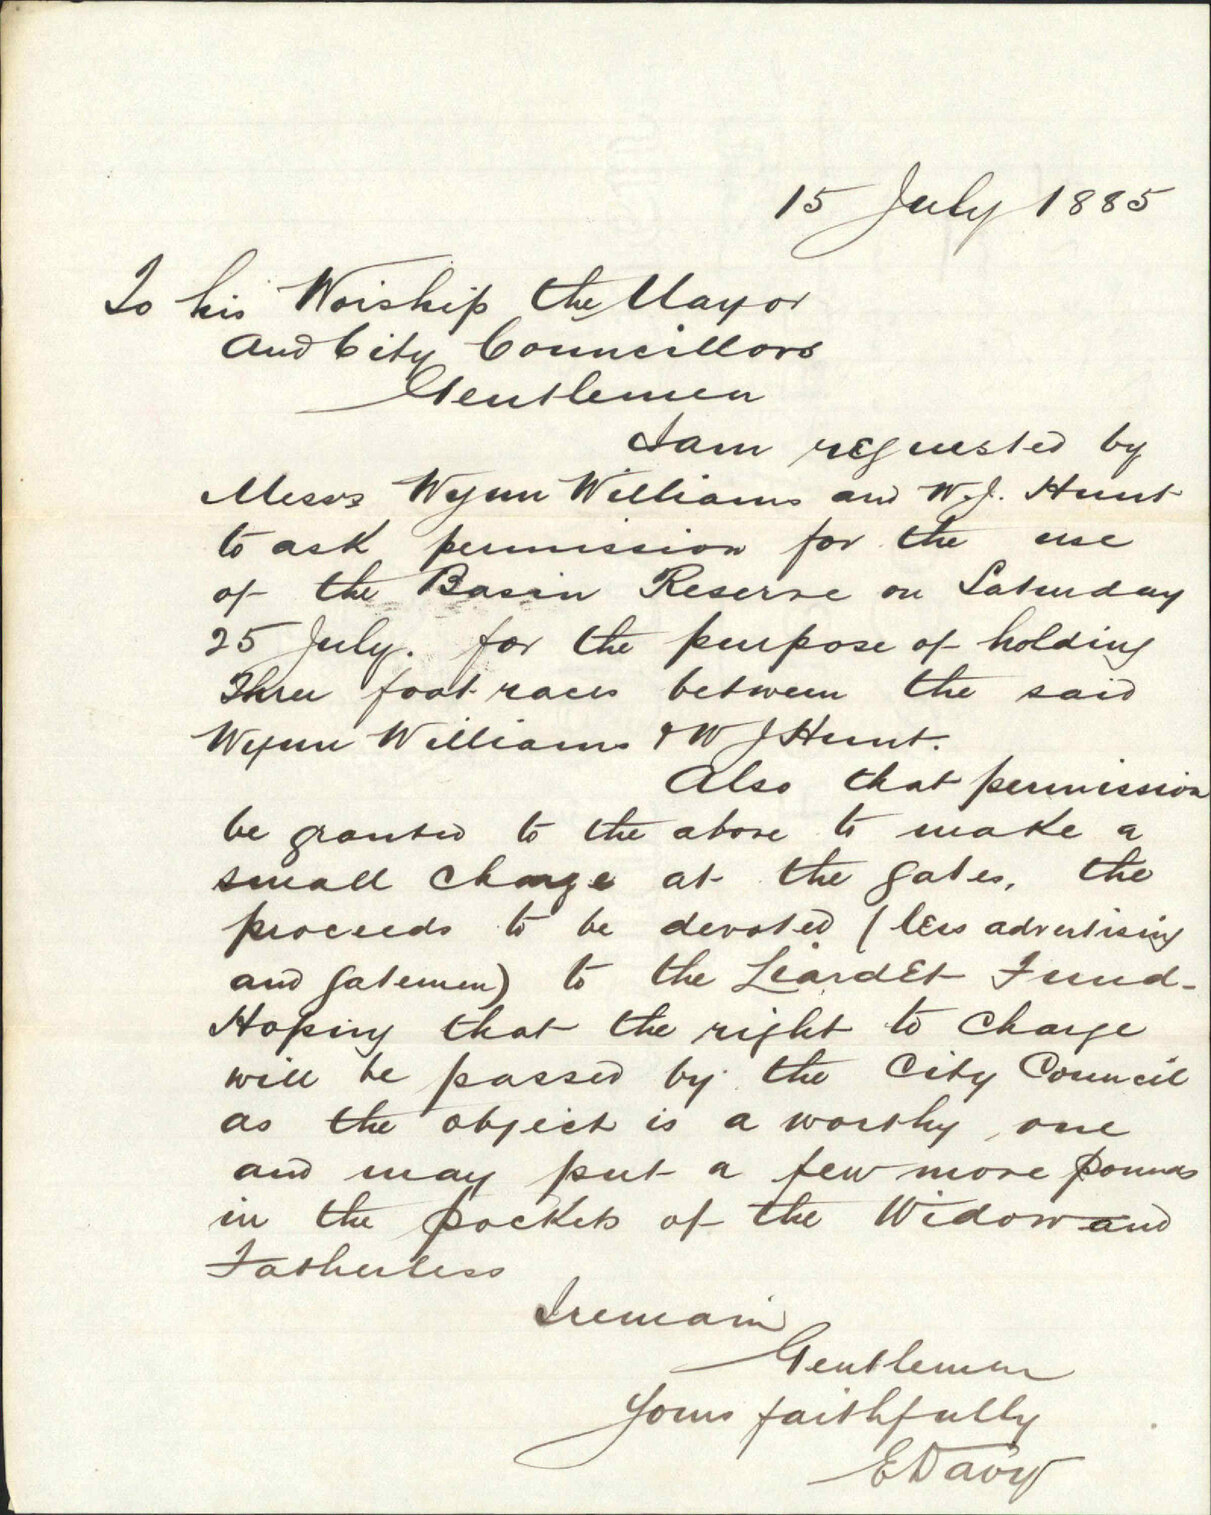 15 July 1885
To his Worship the Mayor
and City Councillors
Gentlemen
I am requested by
Messrs Wynn Williams and W. J. Hunt
to ask permission for the use
of the Basin Reserve on Saturday
25 July. for the purpose of holding
Three foot races between the said
Wynn Williams & W J Hunt.
Also that permission
be granted to the above to make a
small charge at the gates, the
proceeds to be devoted (less advertising
and gatemen) to the Liardet Fund-
Hoping that the right to charge
will be passed by the City Council
as the object is a worthy one
and may put a few more pounds
in the pockets of the Widow and
Fatherless
I remain
Gentlemen
Yours faithfully
E Davy